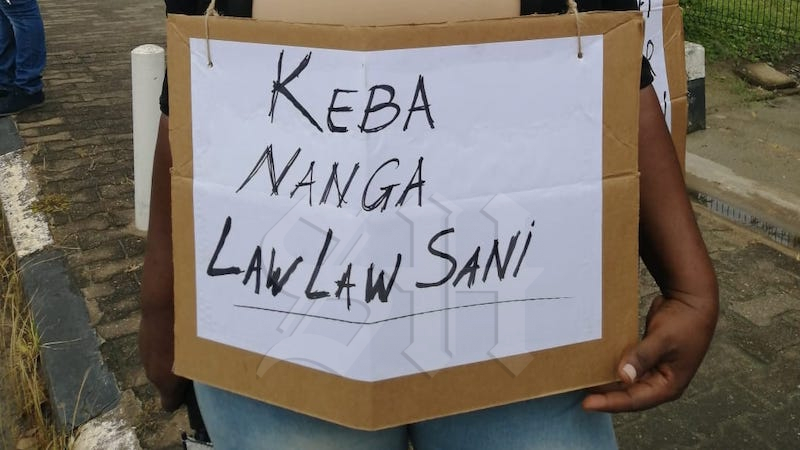 KEBA
NANGA
LAWLAW SANi